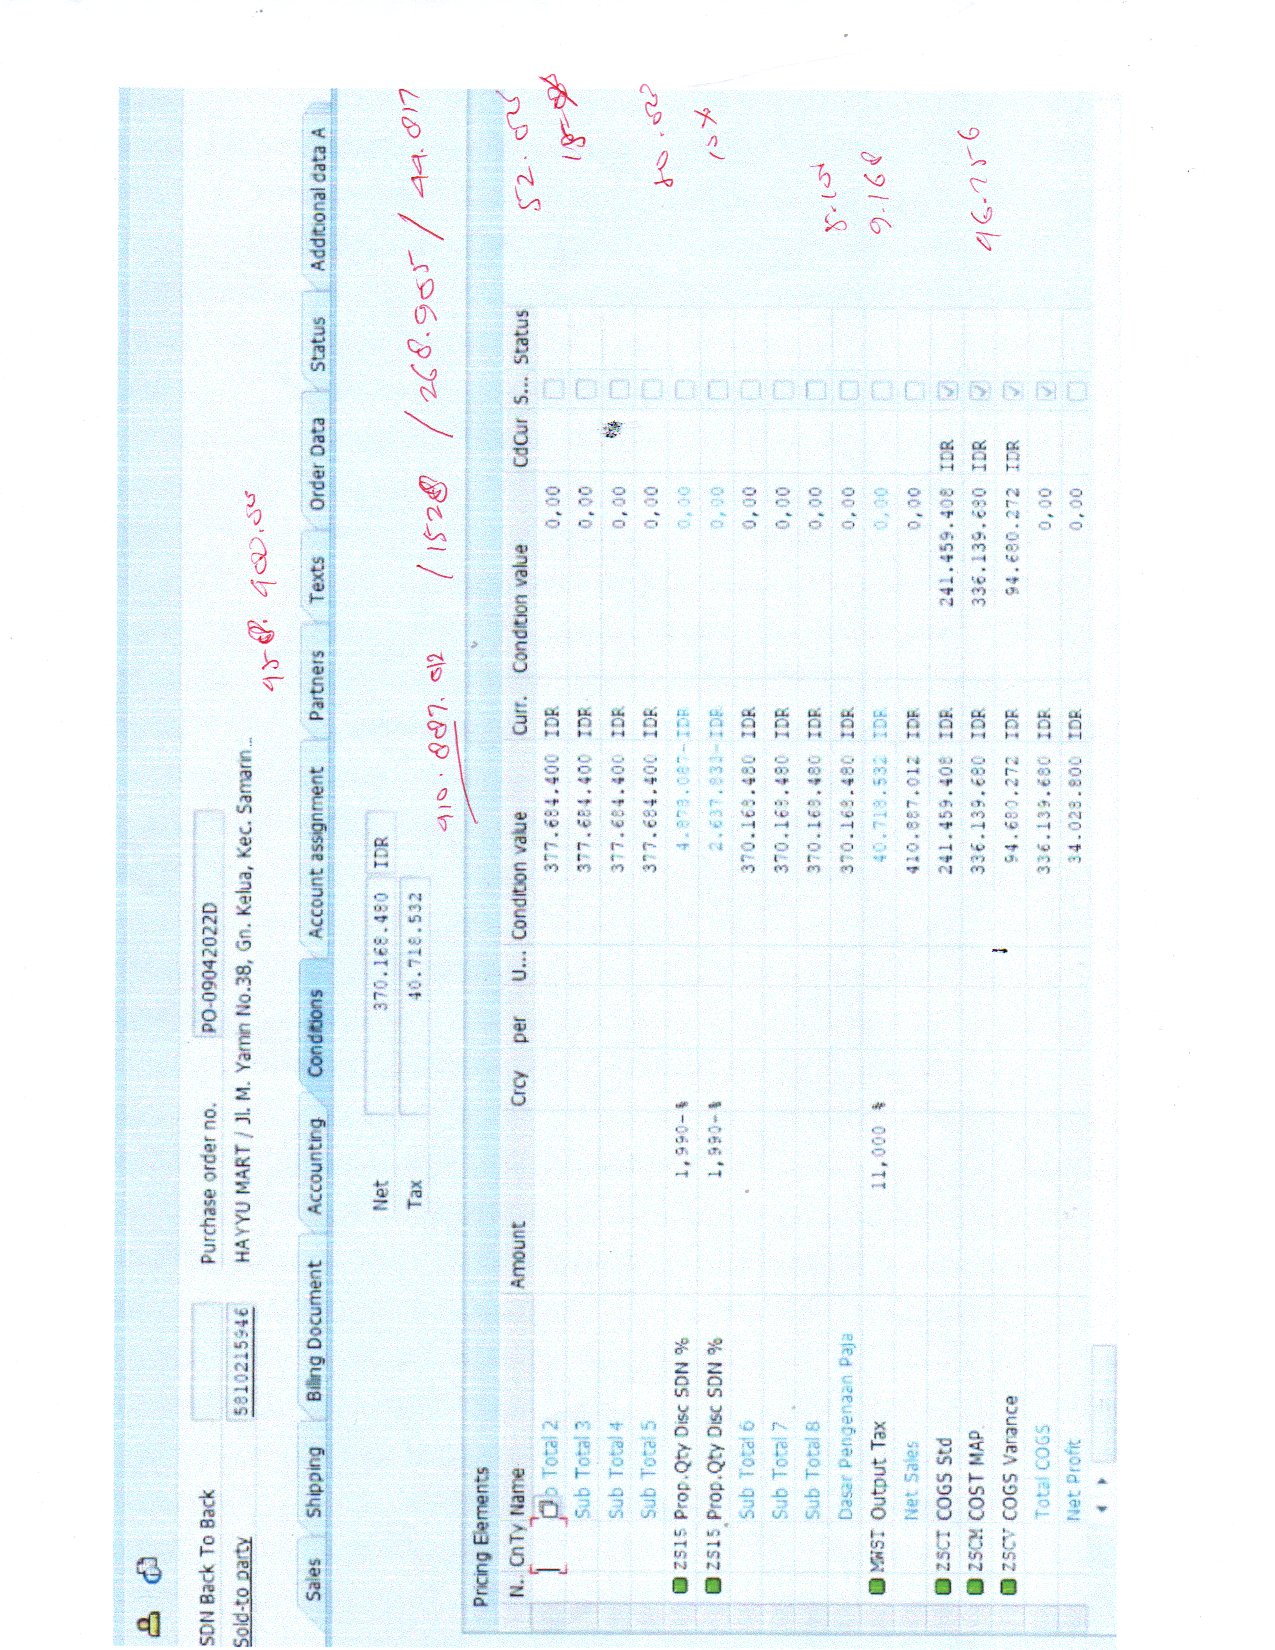 SDN Back To Back Purchase order no. PO-09042022D
Sold-to party 5810215946 HAYYU MART / Jl. M. Yamin No.38, Gn. Kelua, Kec. Samarin...
Sales Shipping Billing Document Accounting Conditions Account assignment Partners Texts Order Data Status Additional data A
Net 370.168.480 IDR
Tax 40.718.532
410.887.012 / 1528 / 268.985 / 44.817
Pricing Elements
N.. CnTy Name Amount Crcy per U... Condition value Curr. Condition value CdCur S... Status
b Total 2 377.684.400 IDR 0,00
Sub Total 3 377.684.400 IDR 0,00
Sub Total 4 377.684.400 IDR 0,00
Sub Total 5 377.684.400 IDR 0,00
ZS15 Prop.Qty Disc SDN % 1,990- % 4.878.087- IDR 0,00
ZS15 Prop.Qty Disc SDN % 1,990- % 2.637.833- IDR 0,00
Sub Total 6 370.168.480 IDR 0,00
Sub Total 7 370.168.480 IDR 0,00
Sub Total 8 370.168.480 IDR 0,00
Dasar Pengenaan Paja 370.168.480 IDR 0,00
MWST Output Tax 11,000 % 40.718.532 IDR 0,00
Net Sales 410.887.012 IDR 0,00
ZSCT COGS Std 241.459.408 IDR 241.459.408 IDR
ZSCM COST MAP 336.139.680 IDR 336.139.680 IDR
ZSCV COGS Variance 94.680.272 IDR 94.680.272 IDR
Total COGS 336.139.680 IDR 0,00
Net Profit 34.028.800 IDR 0,00
9.168
96.756